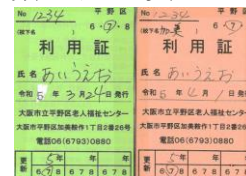 No 1234 平野区
6・7・8
(以下も
利用証
氏名 あいうえお
令和5年3月24日発行
大阪市立平野区老人福祉センター
大阪市平野区加美鞍作1丁目2番26号
電話06(6793)0880
更新 5年 年 年
6 7 8 6 7 8 6 7 8
No 1234 平野
6・7・
(以下も 加美 )
利用証
氏名 あいうえお
令和5年4月1日発
大阪市立平野区老人福祉センタ
大阪市平野区加美鞍作1丁目2番26
電話06(6793)0880
更新 5年 年
6 7 8 6 7 8 6